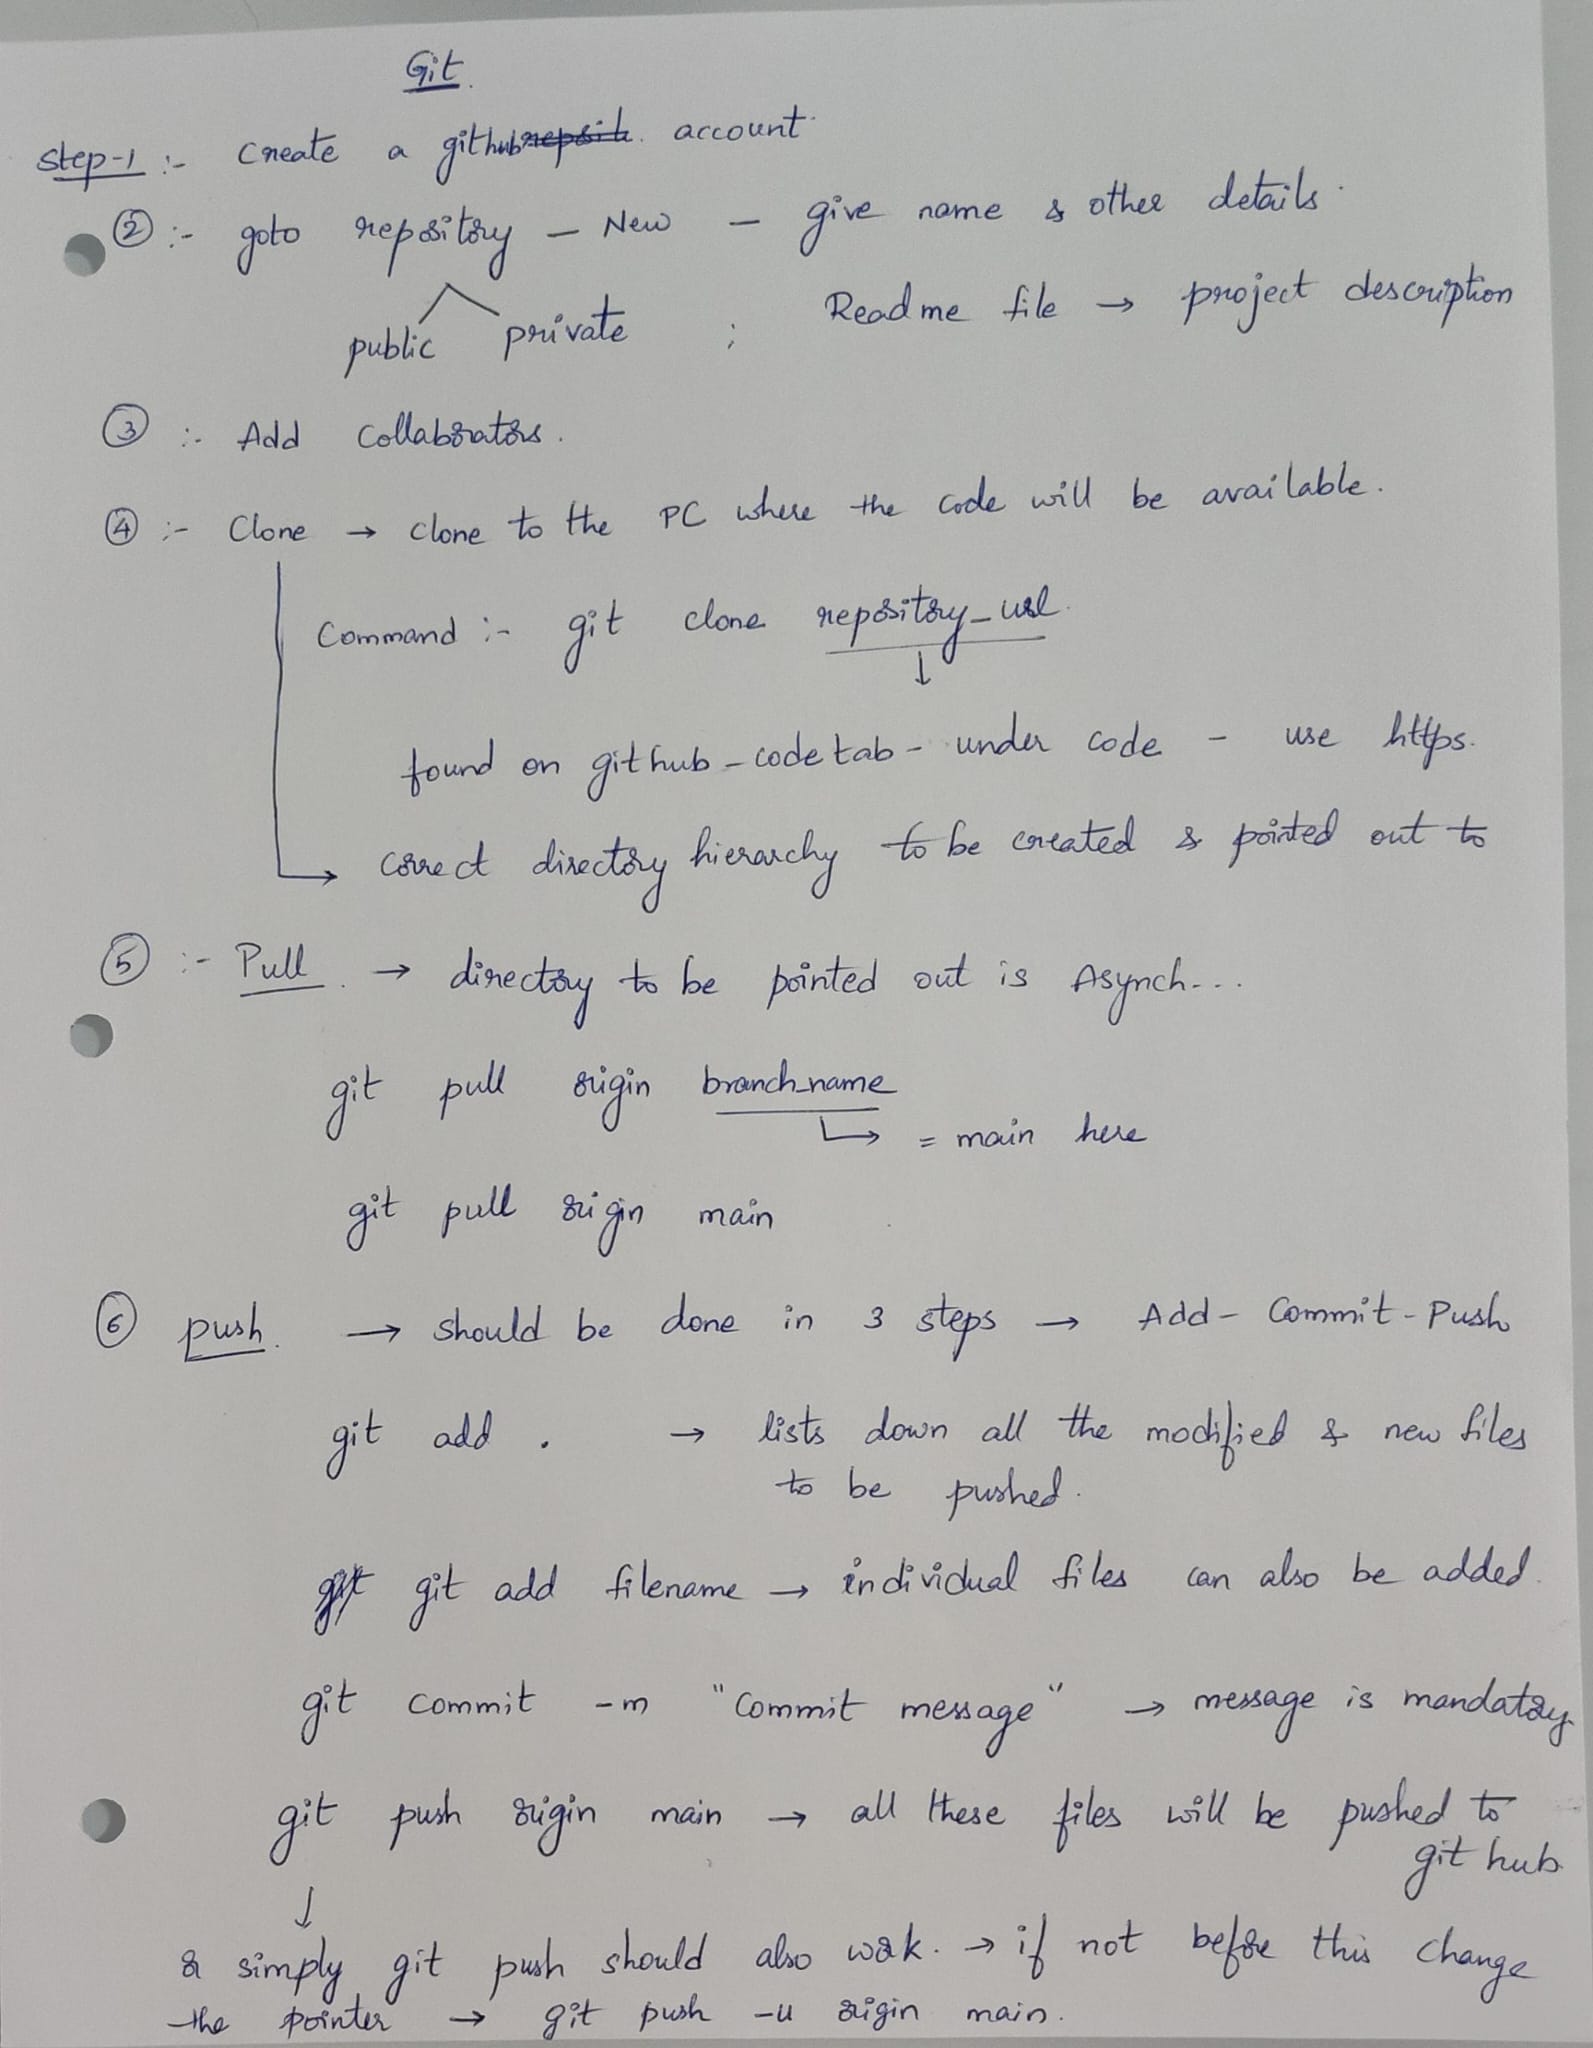 Git.
Step-1 :- Create a github account.
② :- goto repository - New - give name & other details.
public private ; Readme file → project description
③ :- Add Collaborators.
④ :- Clone → clone to the PC where the code will be available.
Command :- git clone repository_url.
↓
found on github - code tab - under code - use https.
→ correct directory hierarchy to be created & pointed out to
⑤ :- Pull. → directory to be pointed out is Asynch...
git pull origin branch_name
↳ = main here
git pull origin main
⑥ push. → should be done in 3 steps → Add - Commit - Push
git add . → lists down all the modified & new files
to be pushed.
git add filename → individual files can also be added.
git commit -m "Commit message" → message is mandatory.
git push origin main → all these files will be pushed to
git hub.
↓
or simply git push should also work. → if not before this change
the pointer → git push -u origin main.